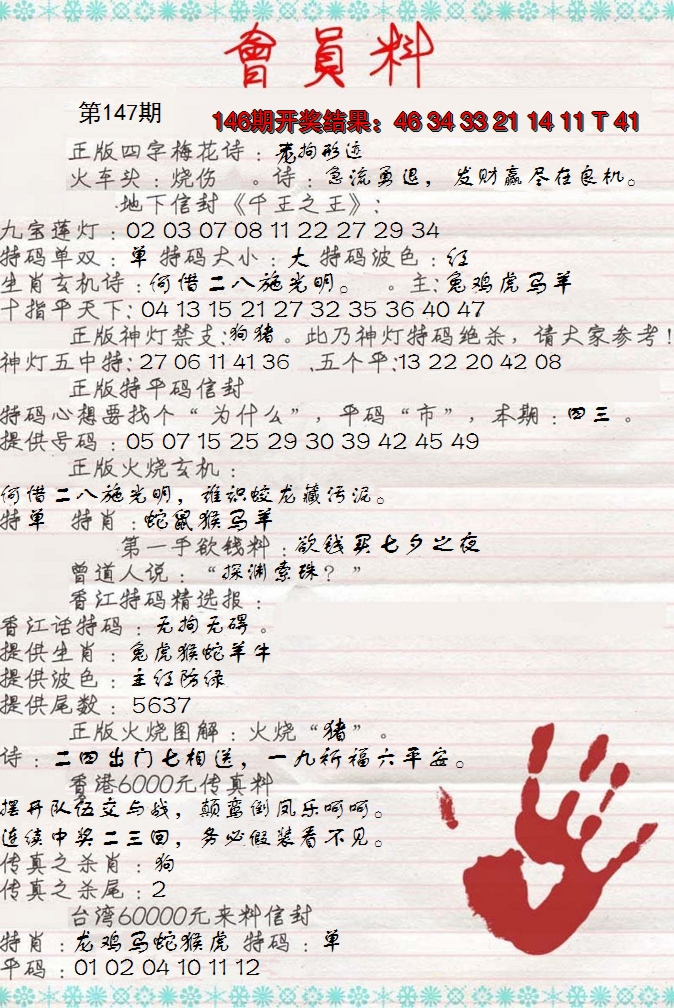 會員料
第147期
146期开奖结果：46 34 33 21 14 11 T 41
正版四字梅花诗：拘形迹
火车头：烧伤 。诗：急流勇退，发财赢尽在良机。
地下信封《千王之王》：
九宝莲灯：02 03 07 08 11 22 27 29 34
特码单双：单 特码大小：大 特码波色：红
生肖玄机诗：何借二八施光明。 。主：兔鸡虎马羊
十指平天下：04 13 15 21 27 32 35 36 40 47
正版神灯禁支：狗猪。此乃神灯特码绝杀，请大家参考！
神灯五中特：27 06 11 41 36 .五个平：13 22 20 42 08
正版特平码信封
特码心想要找个“为什么”，平码“市”，本期：四三。
提供号码：05 07 15 25 29 30 39 42 45 49
正版火烧玄机：
何借二八施光明，谁识蛟龙藏污泥。
特单 特肖：蛇鼠猴马羊
第一手欲钱料：欲钱买七夕之夜
曾道人说：“探渊索珠？”
香江特码精选报：
香江话特码：无拘无碍。
提供生肖：兔虎猴蛇羊牛
提供波色：主红防绿
提供尾数：5637
正版火烧图解：火烧“猪”。
诗：二四出门七相送，一九祈福六平安。
香港6000元传真料
摆开队伍交与战，颠鸾倒凤乐呵呵。
连续中奖二三回，务必假装看不见。
传真之杀肖：狗
传真之杀尾：2
台湾60000元来料信封
特肖：龙鸡马蛇猴虎 特码：单
平码：01 02 04 10 11 12